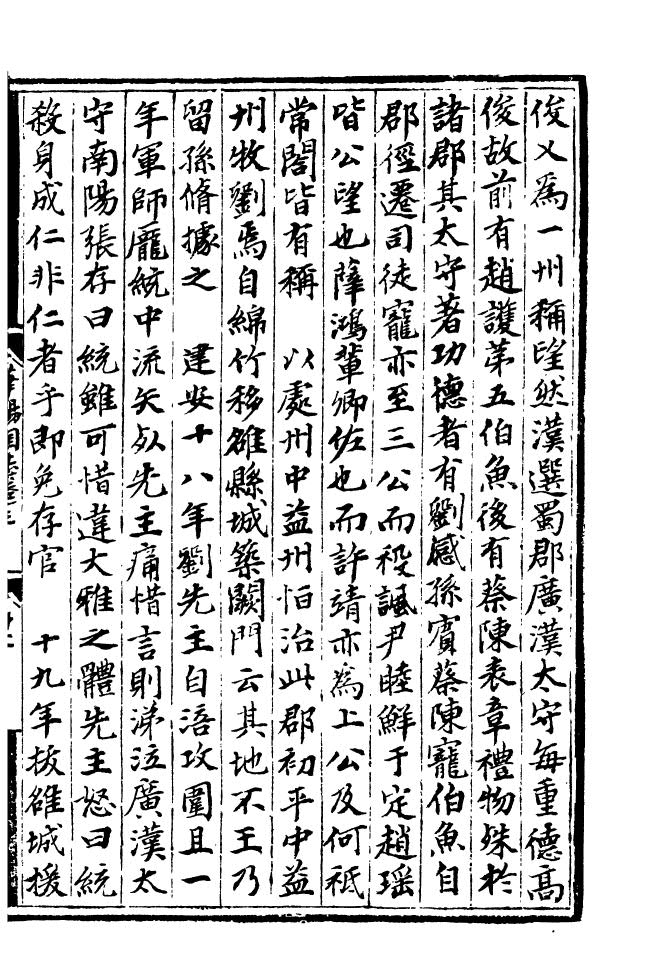 俊乂為一州稱望然漢選蜀郡廣漢太守每重德髙
俊故前有趙護苐五伯魚後有蔡陳表章禮物殊於
諸郡其太守著功德者有劉感孫寳蔡陳寵伯魚自
郡徑遷司徒寵亦至三公而役諷尹睦鮮于定趙瑶
皆公望也薛鴻輩卿佐也而許靖亦為上公及何祗
常閎皆有稱　以處州中益州恒治此郡初平中益
州牧劉焉自綿竹移雒縣城築闕門云其地不王乃
留孫脩據之　建安十八年劉先主自涪攻圍且一
年軍師龎統中流矢死先主痛惜言則涕泣廣漢太
守南陽張存曰統雖可惜違大雅之體先主怒曰統
殺身成仁非仁者乎即免存官　十九年拔雒城援